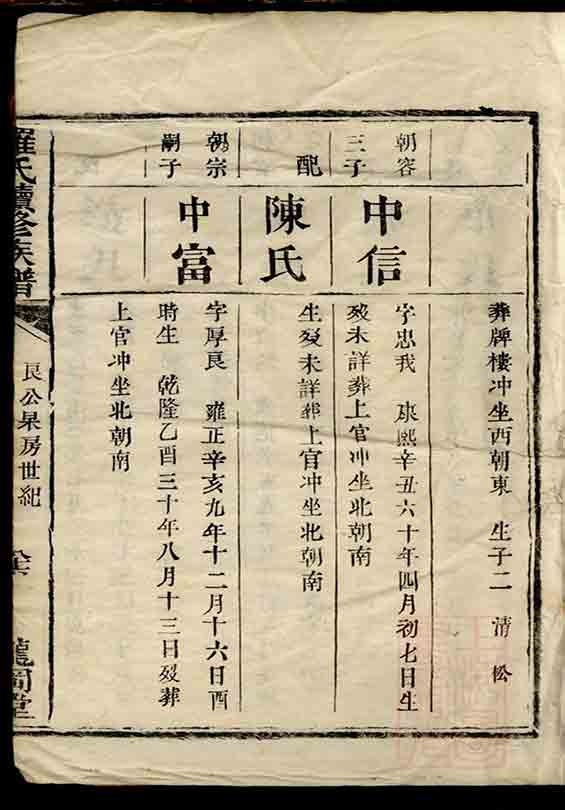 葬牌樓冲坐西朝東　生子二　清　松
朝容
三子
中信
字忠我　康熙辛丑六十年四月初七日生
歿未詳葬上官冲坐北朝南
配
陳氏
生歿未詳葬上官冲坐北朝南
朝宗
嗣子
中富
字厚良　雍正辛亥九年十二月十六日酉
時生　乾隆乙酉三十年八月十三日歿葬
上官冲坐北朝南
羅氏續修族譜
良公杲房世紀